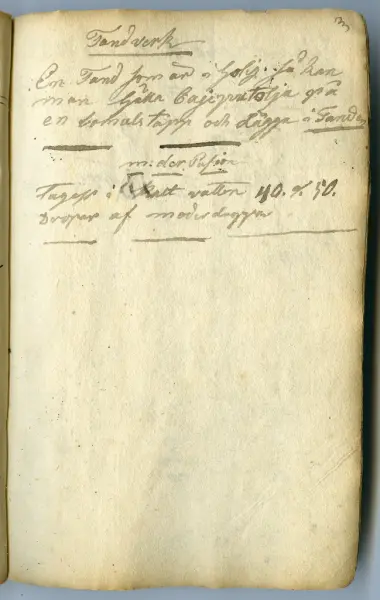 3
Tandverk
En Tand som är i holig. så kan
man hälla Cajeputolja på
en bomulstapp och Lägga i Tanden
moder Pasion
Tages i kalt vatten 40. a 50.
Droper af moderdroppar